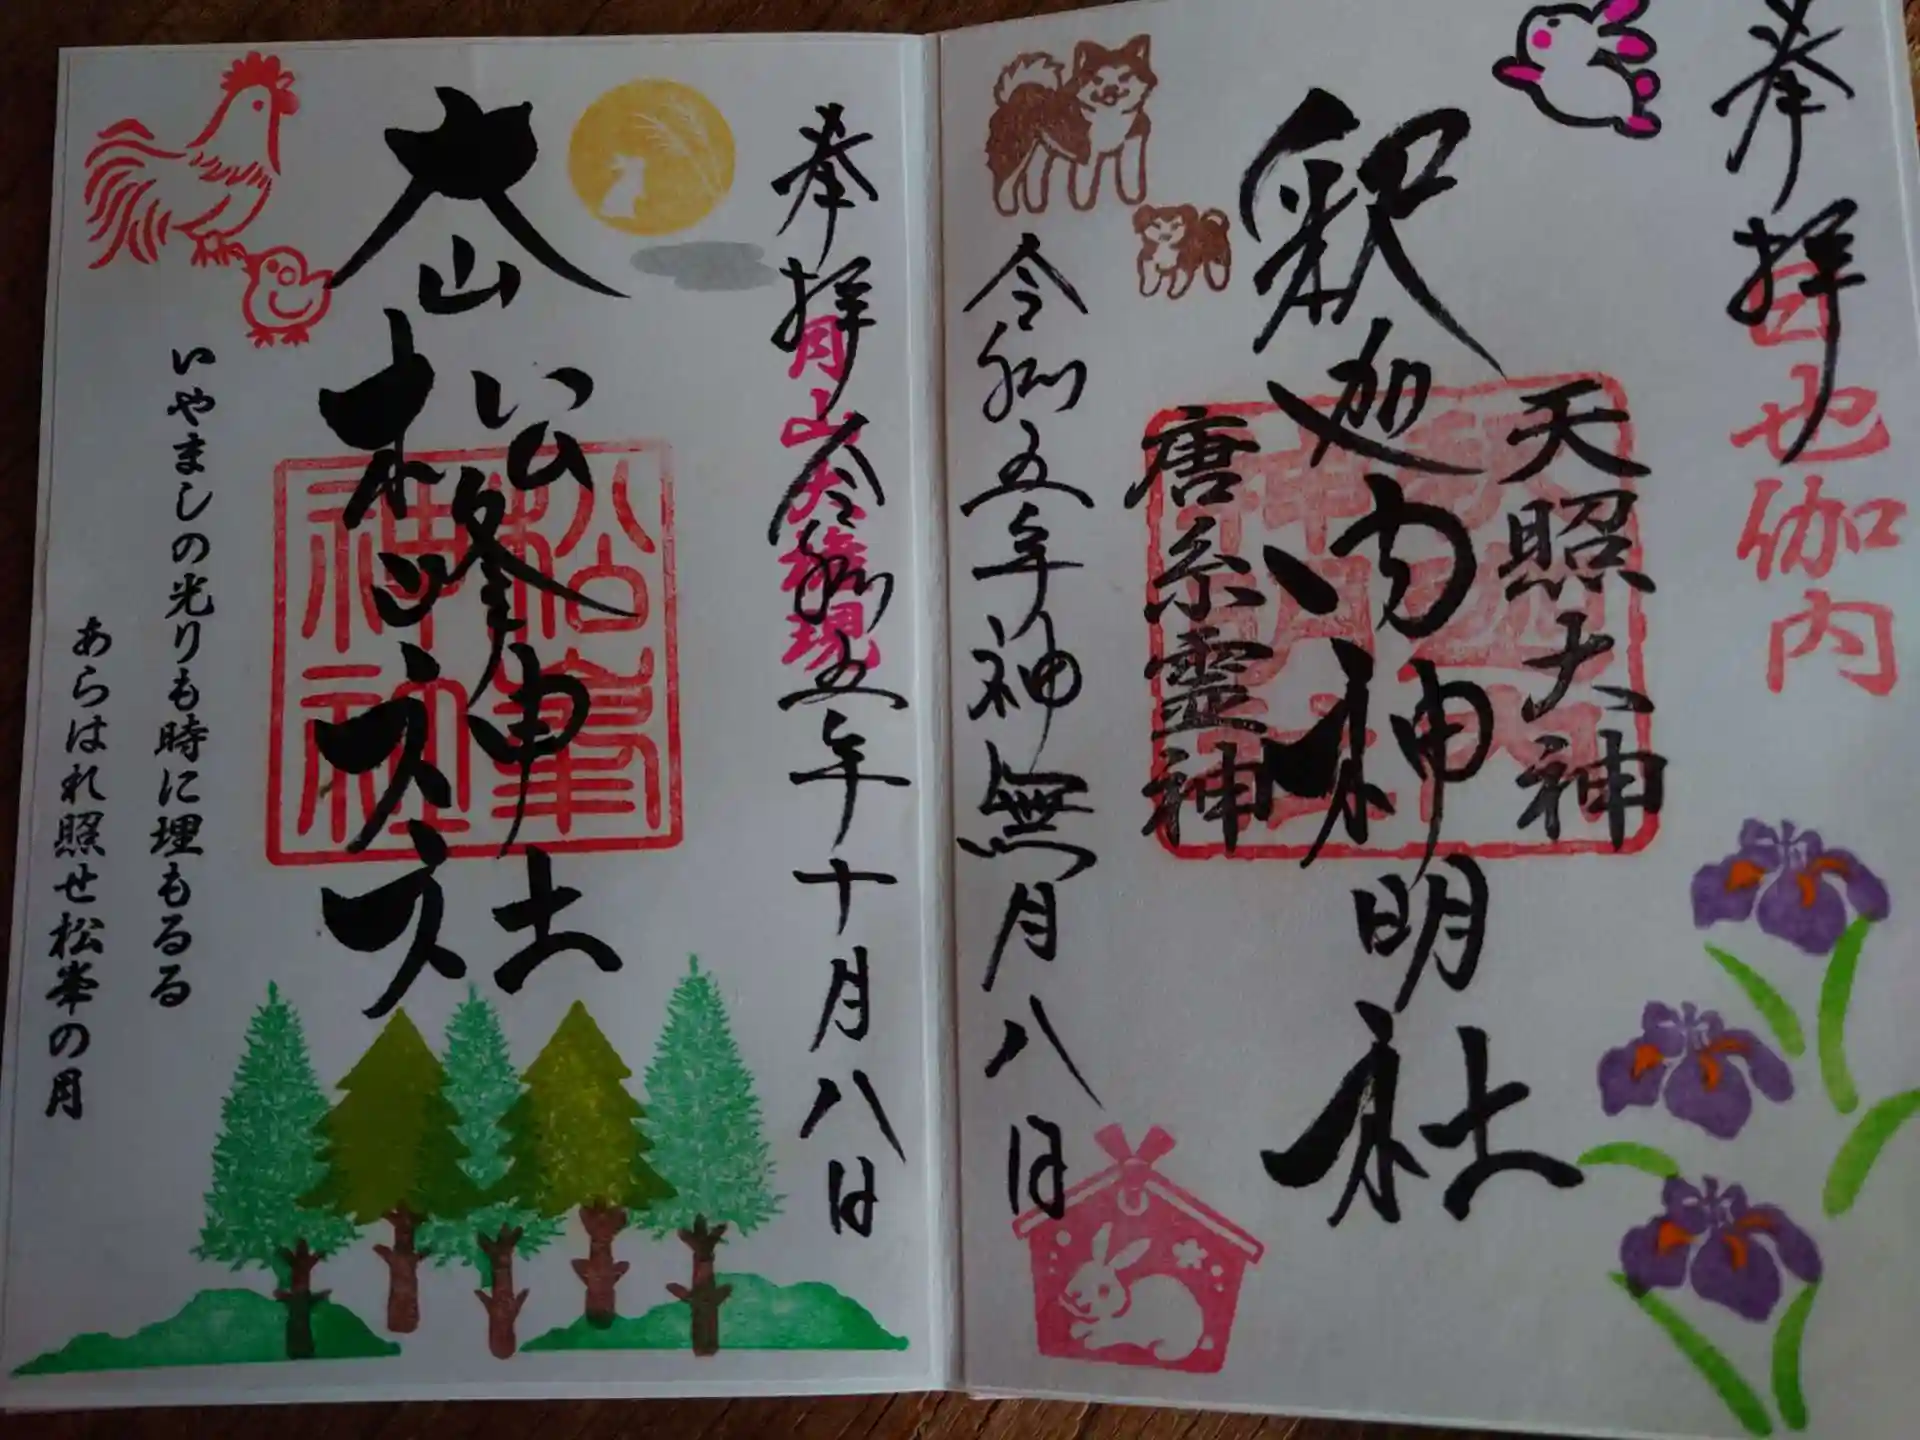 奉拝
日也伽内
天照大神
釈迦内神明社
唐糸霊神
令和五年神無月八日
奉拝
月山大権現
令和五年十月八日
大山
松峰神社
松峯神社
いやましの光りも時に埋もるる
あらはれ照せ松峯の月